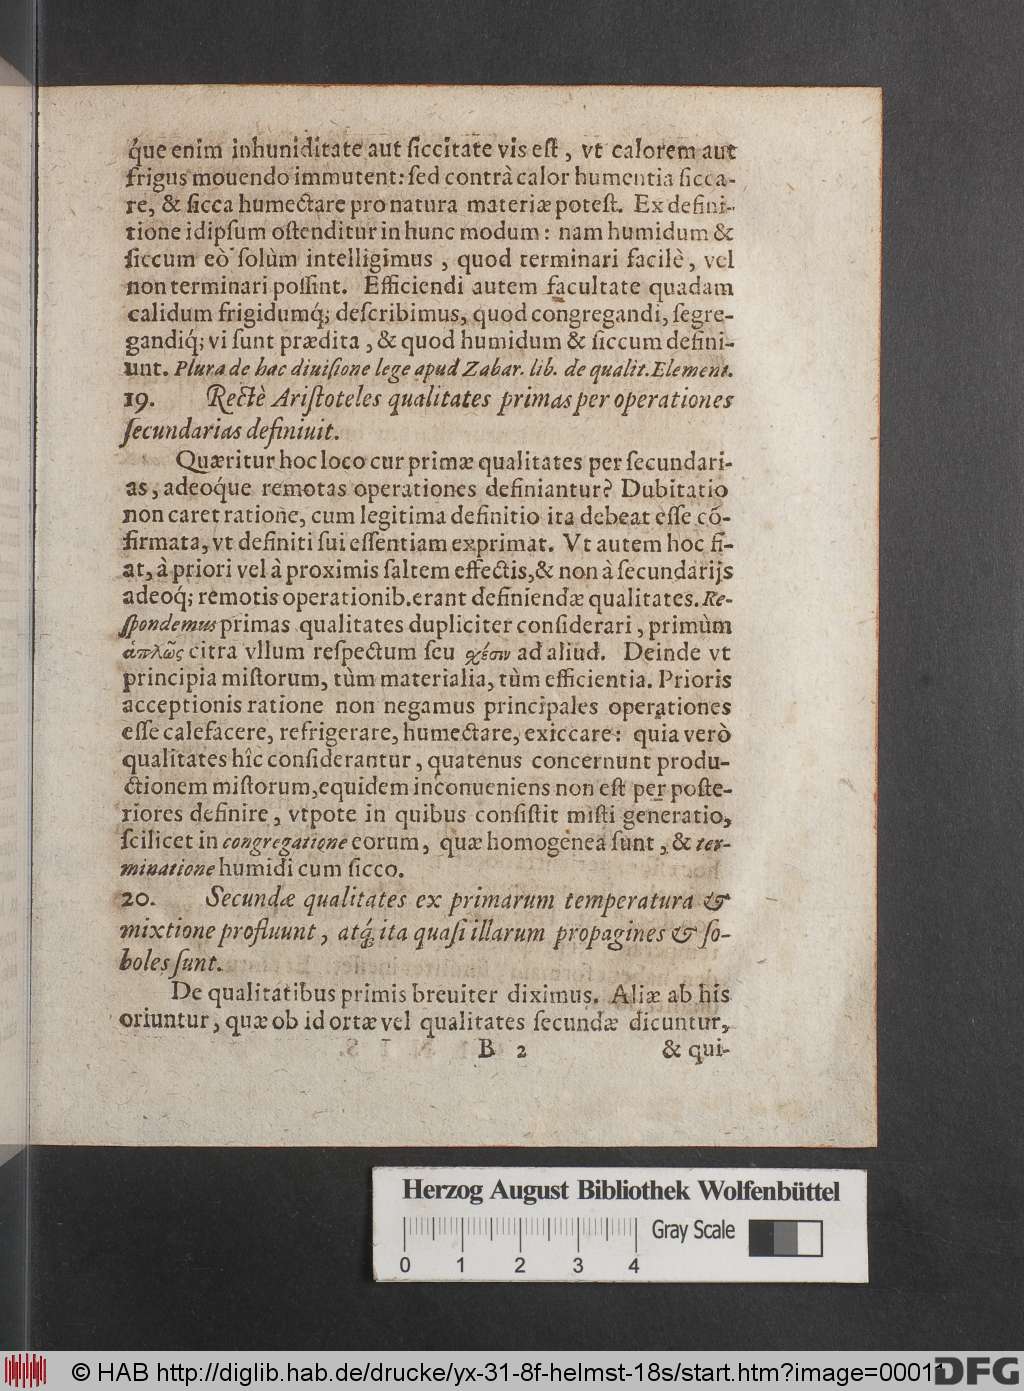 q́ue enim inhuniditate aut ſiccitate vis eſt, vt calorem aut
frigus mouendo immutent: ſed contrà calor humentia ſicca-
re, & ſicca humectare pro natura materiæ poteſt. Ex defini-
tione idipſum oſtenditur in hunc modum: nam humidum &
ſiccum eò ſolùm intelligimus, quod terminari facilè, vel
non terminari poſſint. Efficiendi autem facultate quadam
calidum frigidumq́; deſcribimus, quod congregandi, ſegre-
gandiq́; vi ſunt prædita, & quod humidum & ſiccum defini-
unt. Plura de hac diuiſione lege apud Zabar. lib. de qualit. Element.
19. Rectè Ariſtoteles qualitates primas per operationes
ſecundarias definiuit.
Quæritur hoc loco cur primæ qualitates per ſecundari-
as, adeoq́ue remotas operationes definiantur? Dubitatio
non caret ratione, cum legitima definitio ita debeat eſſe cō-
firmata, vt definiti ſui eſſentiam exprimat. Vt autem hoc fi-
at, à priori vel à proximis ſaltem effectis, & non à ſecundarijs
adeoq́; remotis operationib. erant definiendæ qualitates. Re-
ſpondemus primas qualitates dupliciter conſiderari, primùm
ἁπλῶς citra vllum reſpectum ſeu σχέσιν ad aliud. Deinde vt
principia miſtorum, tùm materialia, tùm efficientia. Prioris
acceptionis ratione non negamus principales operationes
eſſe calefacere, refrigerare, humectare, exiccare: quia verò
qualitates hîc conſiderantur, quatenus concernunt produ-
ctionem miſtorum, equidem inconueniens non eſt per poſte-
riores definire, vtpote in quibus conſiſtit miſti generatio,
ſcilicet in congregatione eorum, quæ homogenea ſunt, & ter-
minatione humidi cum ſicco.
20. Secundæ qualitates ex primarum temperatura &
mixtione profluunt, atq́; ita quaſi illarum propagines & ſo-
boles ſunt.
De qualitatibus primis breuiter diximus. Aliæ ab his
oriuntur, quæ ob id ortæ vel qualitates ſecundæ dicuntur,
B 2 & qui-
Herzog August Bibliothek Wolfenbüttel
Gray Scale
0 1 2 3 4
© HAB http://diglib.hab.de/drucke/yx-31-8f-helmst-18s/start.htm?image=00011
DFG